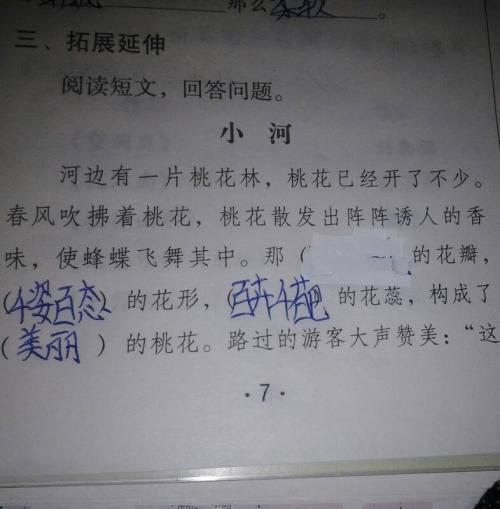 那么柔软。
三、拓展延伸
阅读短文，回答问题。
小 河
河边有一片桃花林，桃花已经开了不少。
春风吹拂着桃花，桃花散发出阵阵诱人的香
味，使蜂蝶飞舞其中。那（ 的花瓣，
(千姿百态) 的花形， 的花蕊，构成了
( 美丽 ) 的桃花。路过的游客大声赞美：“这
·7·